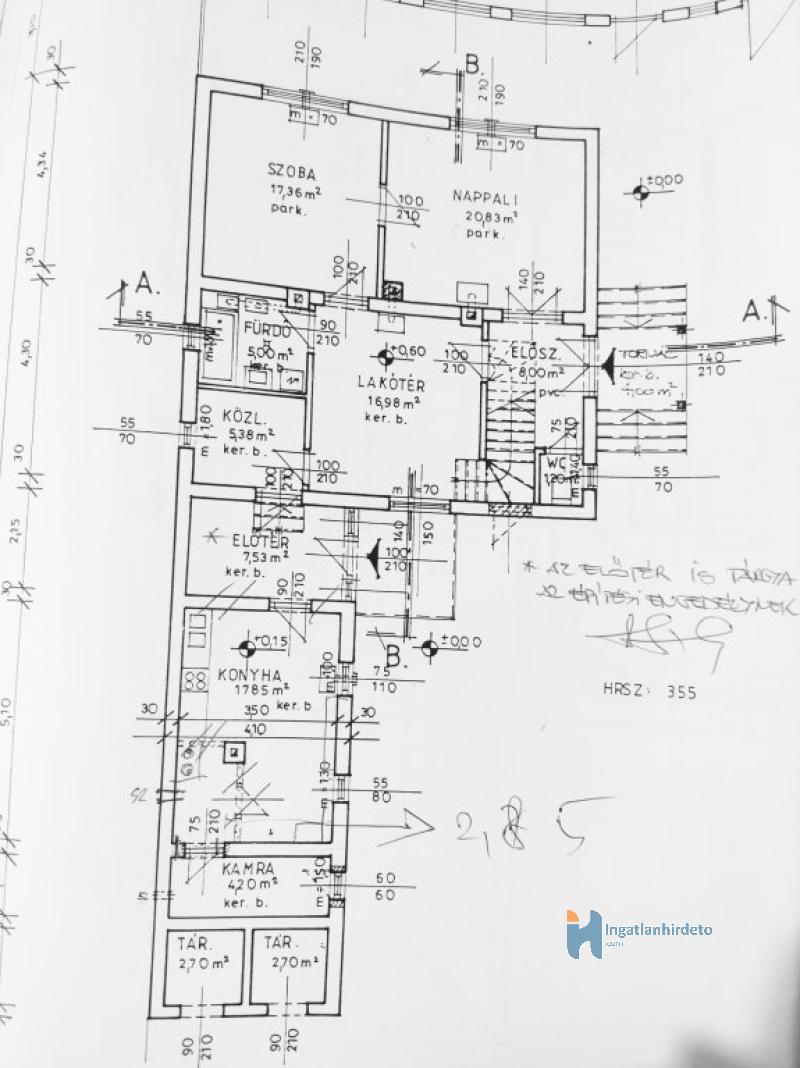 210
190
B
210
190
30
30
m 70
m 70
4,34
SZOBA
17,36 m²
park.
NAPPALI
20,83 m²
park.
100
210
±0,00
30
100
210
140
210
A.
A.
55
70
FÜRDŐ
5,00 m²
ker b.
90
210
+0,60
100
210
ELŐSZ.
8,00 m²
pvc.
140
210
4,30
LAKÓTÉR
16,98 m²
ker. b.
55
70
KÖZL.
5,38 m²
ker. b.
m = 1,80
75
210
WC
1,20 m²
55
70
30
100
210
100
210
m 70
140
150
2,15
* ELŐTÉR
7,53 m²
ker. b.
100
210
* AZ ELŐTÉR IS TÁRGYA
AZ ÉPÍTÉSI ENGEDÉLYNEK
30
90
210
+0,15
B.
±0,00
KONYHA
17,85 m²
ker. b
m 100
75
110
HRSZ: 355
30
350
30
410
5,10
m 130
55
80
75
210
2,85
KAMRA
4,20 m²
ker. b.
m = 1,50
60
60
TÁR.
2,70 m²
TÁR.
2,70 m²
Ingatlanhirdeto
.com
90
210
90
210